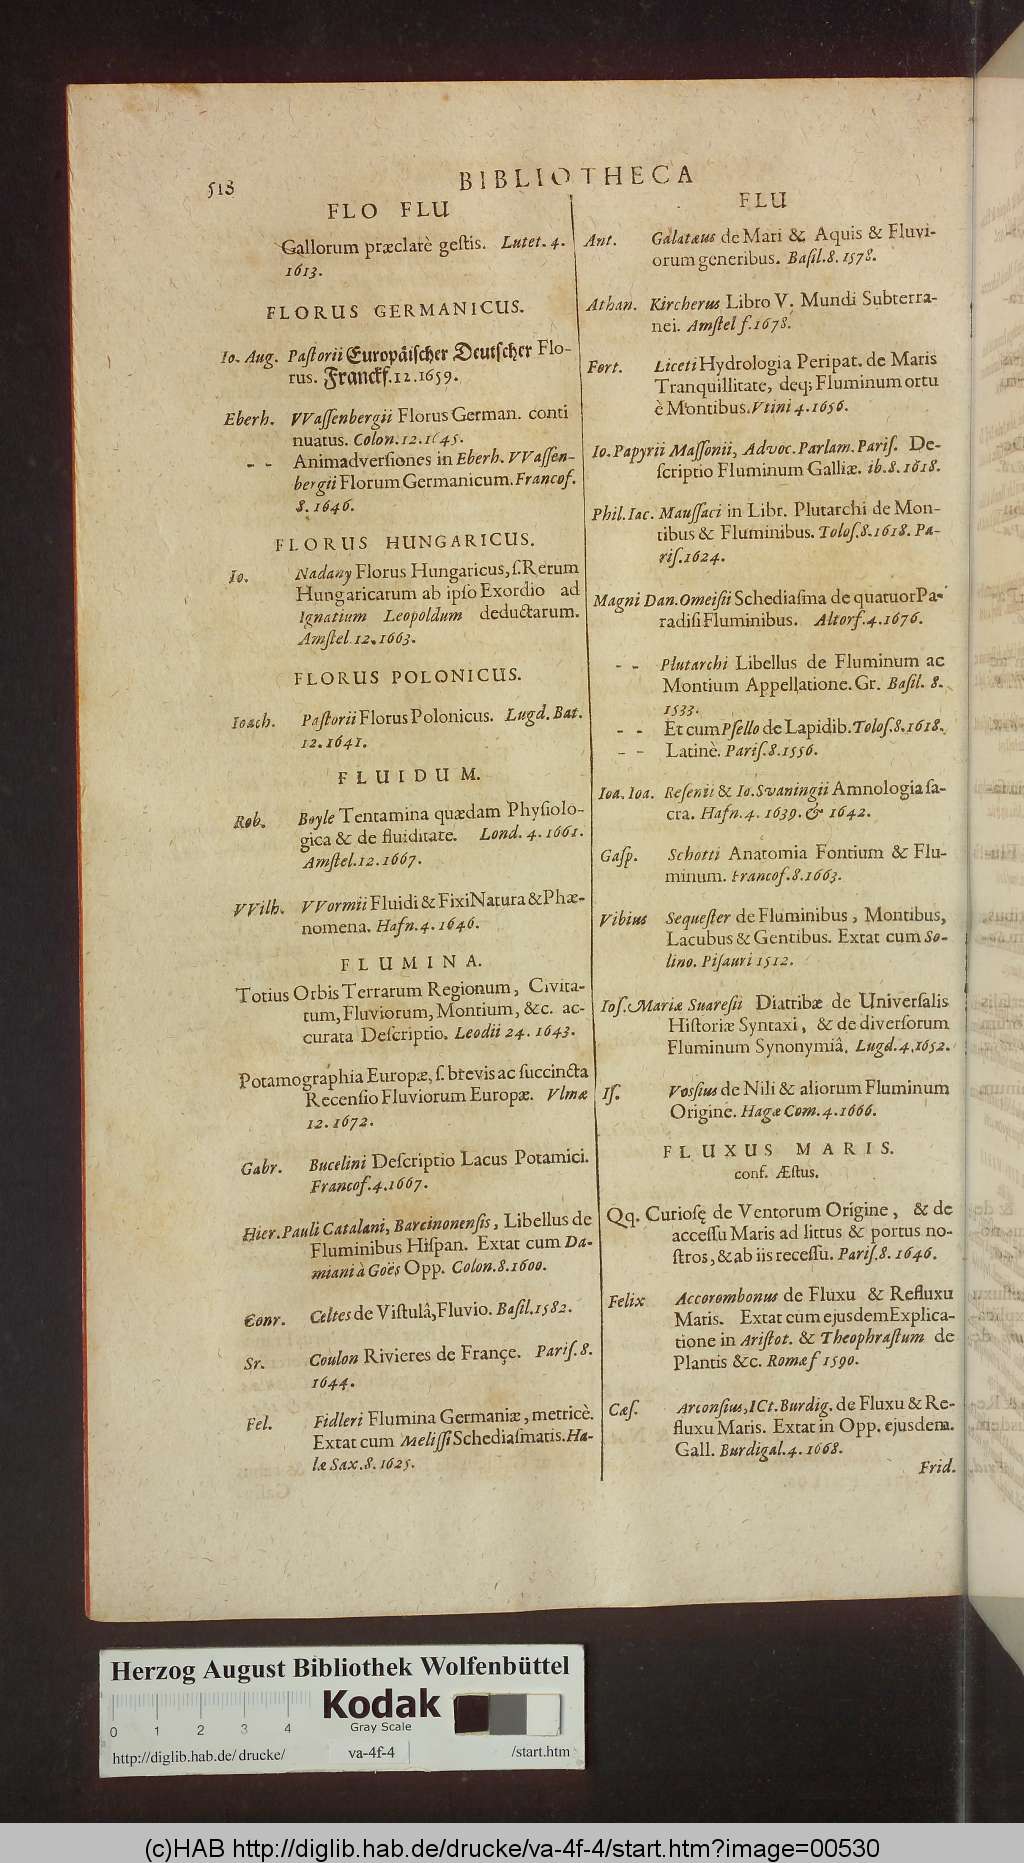 518
BIBLIOTHECA
FLO FLU
Gallorum præclarè gestis. Lutet. 4.
1613.
FLORUS GERMANICUS.
Io. Aug. Pastorii Europäischer Deutscher Flo-
rus. Franckf. 12. 1659.
Eberh. VVassenbergii Florus German. conti
nuatus. Colon. 12. 1645.
- - Animadversiones in Eberh. VVassen-
bergii Florum Germanicum. Francof.
8. 1646.
FLORUS HUNGARICUS.
Io. Nadany Florus Hungaricus, s. Rerum
Hungaricarum ab ipso Exordio ad
Ignatium Leopoldum deductarum.
Amstel. 12. 1663.
FLORUS POLONICUS.
Ioach. Pastorii Florus Polonicus. Lugd. Bat.
12. 1641.
FLUIDUM.
Rob. Boyle Tentamina quædam Physiolo-
gica & de fluiditate. Lond. 4. 1661.
Amstel. 12. 1667.
VVilh. VVormii Fluidi & Fixi Natura & Phæ-
nomena. Hafn. 4. 1646.
FLUMINA.
Totius Orbis Terrarum Regionum, Civita-
tum, Fluviorum, Montium, &c. ac-
curata Descriptio. Leodii 24. 1643.
Potamographia Europæ, s. brevis ac succincta
Recensio Fluviorum Europæ. Vlmæ
12. 1672.
Gabr. Bucelini Descriptio Lacus Potamici.
Francof. 4. 1667.
Hier. Pauli Catalani, Barcinonensis, Libellus de
Fluminibus Hispan. Extat cum Da-
miani à Goës Opp. Colon. 8. 1600.
Conr. Celtes de Vistulâ, Fluvio. Basil. 1582.
Sr. Coulon Rivieres de Françe. Paris. 8.
1644.
Fel. Fidleri Flumina Germaniæ, metricè.
Extat cum Melissi Schediasmatis. Ha-
læ Sax. 8. 1625.
FLU
Ant. Galatæus de Mari & Aquis & Fluvi-
orum generibus. Basil. 8. 1578.
Athan. Kircherus Libro V. Mundi Subterra-
nei. Amstel f. 1678.
Fort. Liceti Hydrologia Peripat. de Maris
Tranquillitate, deq; Fluminum ortu
è Montibus. Vtini 4. 1656.
Io. Papyrii Massonii, Advoc. Parlam. Paris. De-
scriptio Fluminum Galliæ. ib. 8. 1618.
Phil. Iac. Maussaci in Libr. Plutarchi de Mon-
tibus & Fluminibus. Tolos. 8. 1618. Pa-
ris. 1624.
Magni Dan. Omeisii Schediasma de quatuor Pa-
radisi Fluminibus. Altorf. 4. 1676.
- - Plutarchi Libellus de Fluminum ac
Montium Appellatione. Gr. Basil. 8.
1533.
- - Et cum Psello de Lapidib. Tolos. 8. 1618.
- - Latinè. Paris. 8. 1556.
Ioa. Ioa. Resenii & Io. Svaningii Amnologia sa-
cra. Hafn. 4. 1639. & 1642.
Gasp. Schotti Anatomia Fontium & Flu-
minum. Francof. 8. 1663.
Vibius Sequester de Fluminibus, Montibus,
Lacubus & Gentibus. Extat cum So-
lino. Pisauri 1512.
Ios. Mariæ Suaresii Diatribæ de Universalis
Historiæ Syntaxi, & de diversorum
Fluminum Synonymiâ. Lugd. 4. 1652.
Is. Vossius de Nili & aliorum Fluminum
Origine. Hagæ Com. 4. 1666.
FLUXUS MARIS.
conf. Æstus.
Qq. Curiosę de Ventorum Origine, & de
accessu Maris ad littus & portus no-
stros, & ab iis recessu. Paris. 8. 1646.
Felix Accorombonus de Fluxu & Refluxu
Maris. Extat cum ejusdem Explica-
tione in Aristot. & Theophrastum de
Plantis &c. Romæ f 1590.
Cæs. Arconsius, ICt. Burdig. de Fluxu & Re-
fluxu Maris. Extat in Opp. ejusdem.
Gall. Burdigal. 4. 1668.
Frid.
Herzog August Bibliothek Wolfenbüttel
0 1 2 3 4
Kodak
Gray Scale
http://diglib.hab.de/ drucke/ va-4f-4 /start.htm
(c)HAB http://diglib.hab.de/drucke/va-4f-4/start.htm?image=00530